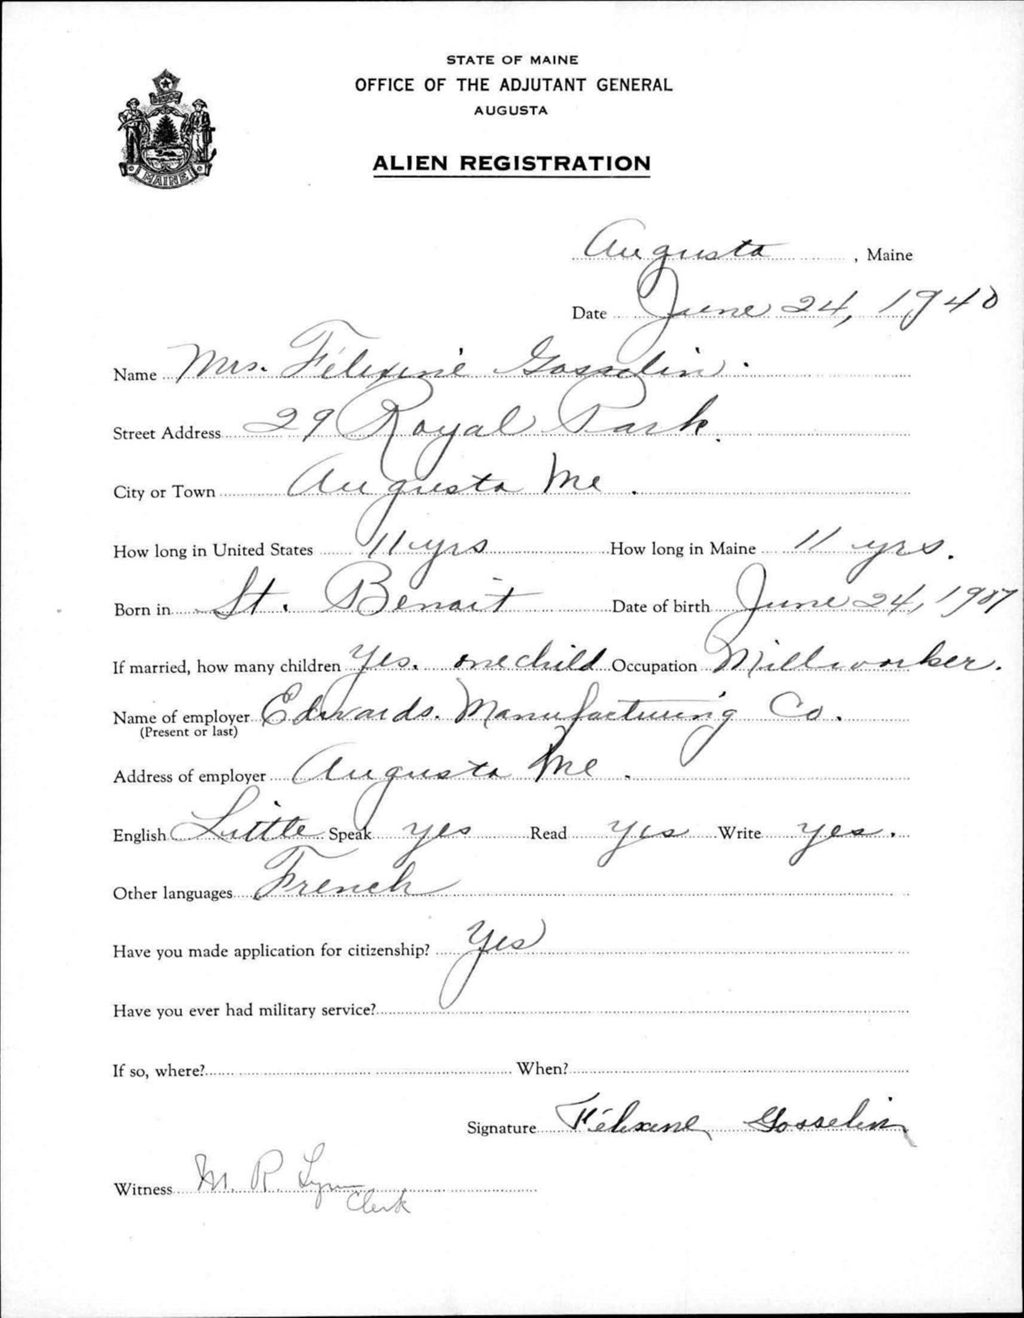 STATE OF MAINE
OFFICE OF THE ADJUTANT GENERAL
AUGUSTA
MAINE
ALIEN REGISTRATION
Augusta, Maine
Date June 24, 1940
Name Mrs. Félexine Gosselin.
Street Address 29 Royal Park.
City or Town Augusta Me.
How long in United States 11 yrs How long in Maine 11 yrs.
Born in St. Benoit Date of birth June 24, 1907
If married, how many children Yes. one child Occupation Millworker.
Name of employer Edwards. Manufacturing Co.
(Present or last)
Address of employer Augusta Me.
English Little Speak yes Read yes Write yes.
Other languages French
Have you made application for citizenship? Yes
Have you ever had military service?
If so, where? When?
Signature Félexine Gosselin
Witness M. R. Clerk